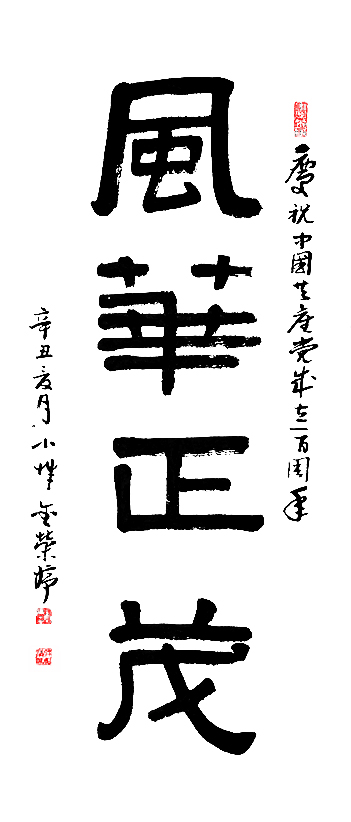 慶祝中國共產党成立一百周年
風華正茂
辛丑夏月
金榮